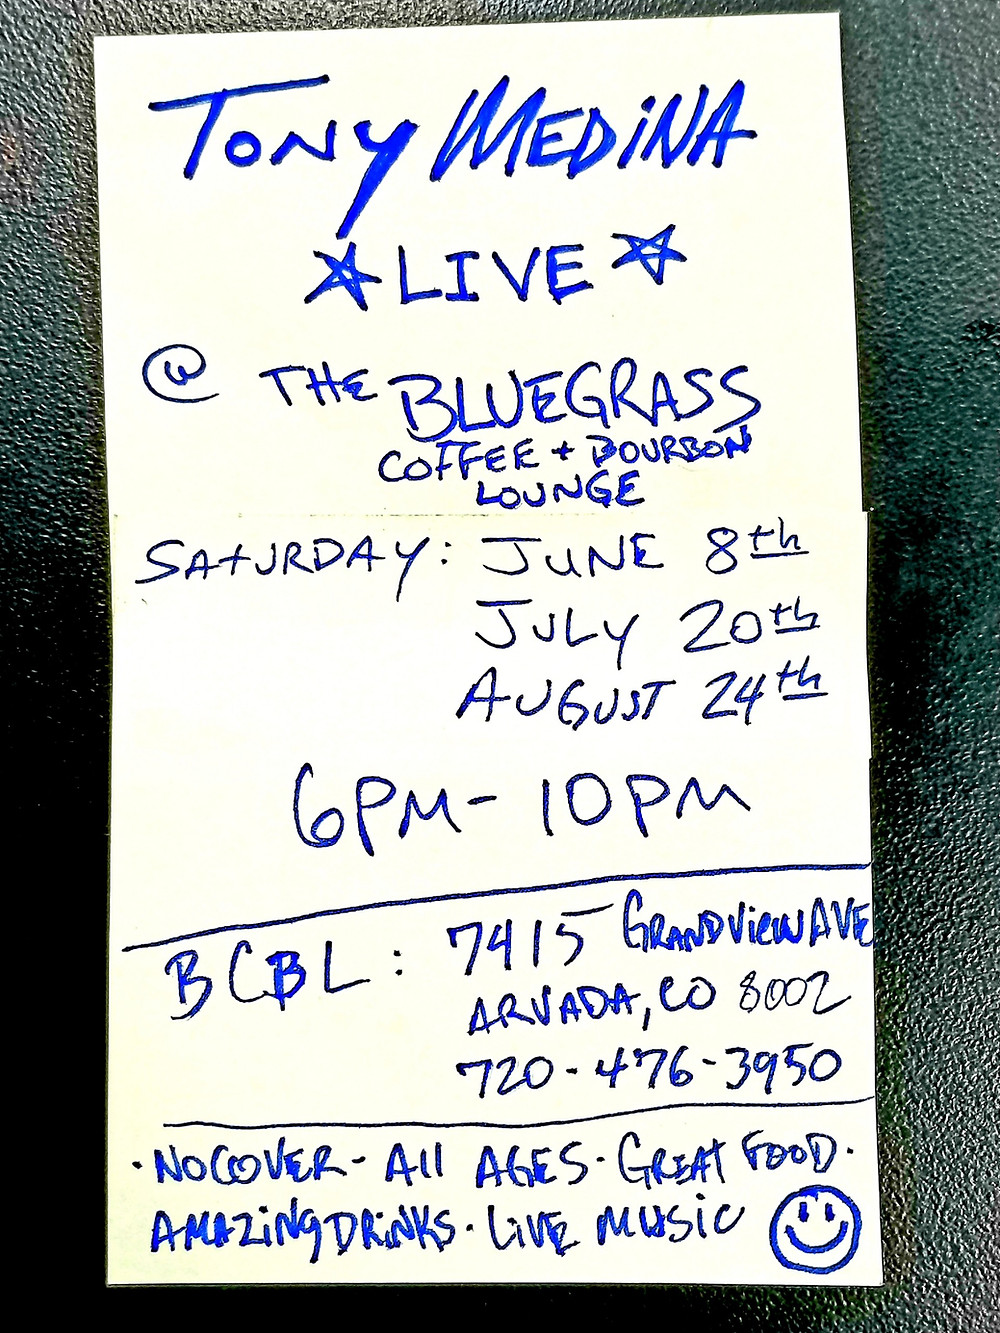 Tony MEDiNA
☆ LIVE ☆
@ THE BLUEGRASS
COFFEE + BOURBON
LOUNGE
SATURDAY: JUNE 8th
JULY 20th
AUGUST 24th
6PM - 10PM
BCBL: 7415 GRANDVIEW AVE
ARVADA, CO 8002
720-476-3950
· NO COVER - All AGES · GREAT FOOD ·
AMAZiNG DRiNKS · LiVE MUSiC